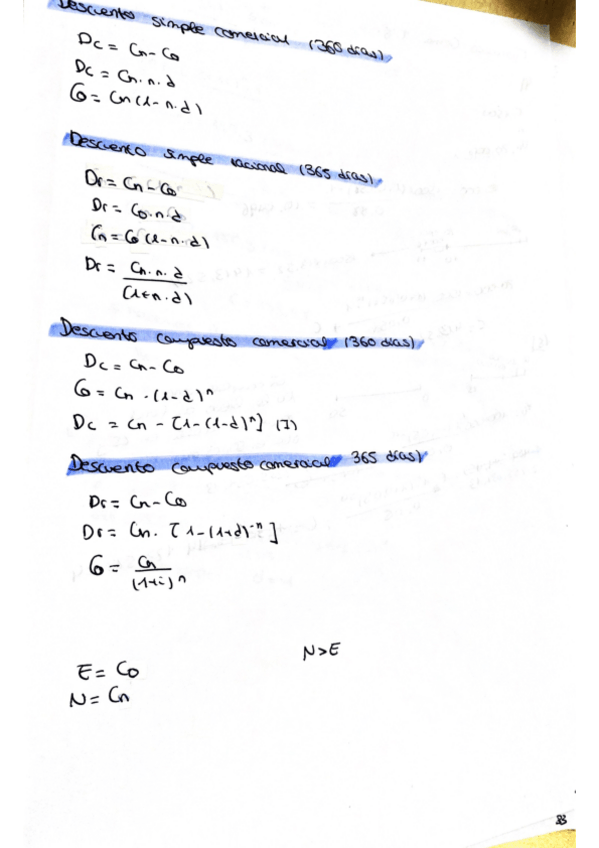 Descuento simple comercial (360 días)
Dc = Cn - Co
Dc = Cn . n . d
Co = Cn (1 - n . d)
Descuento simple racional (365 días)
Dr = Cn - Co
Dr = Co . n . d
Cn = Co (1 - n . d)
Dr = Cn . n . d
(1 + n . d)
Descuento compuesto comercial (360 días)
Dc = Cn - Co
Co = Cn . (1 - d)^n
Dc = Cn - [1 - (1 - d)^n] (I)
Descuento compuesto comercial 365 días)
Dr = Cn - Co
Dr = Cn . [1 - (1 + d)^-n]
Co = Cn
(1 + i)^n
N > E
E = Co
N = Cn